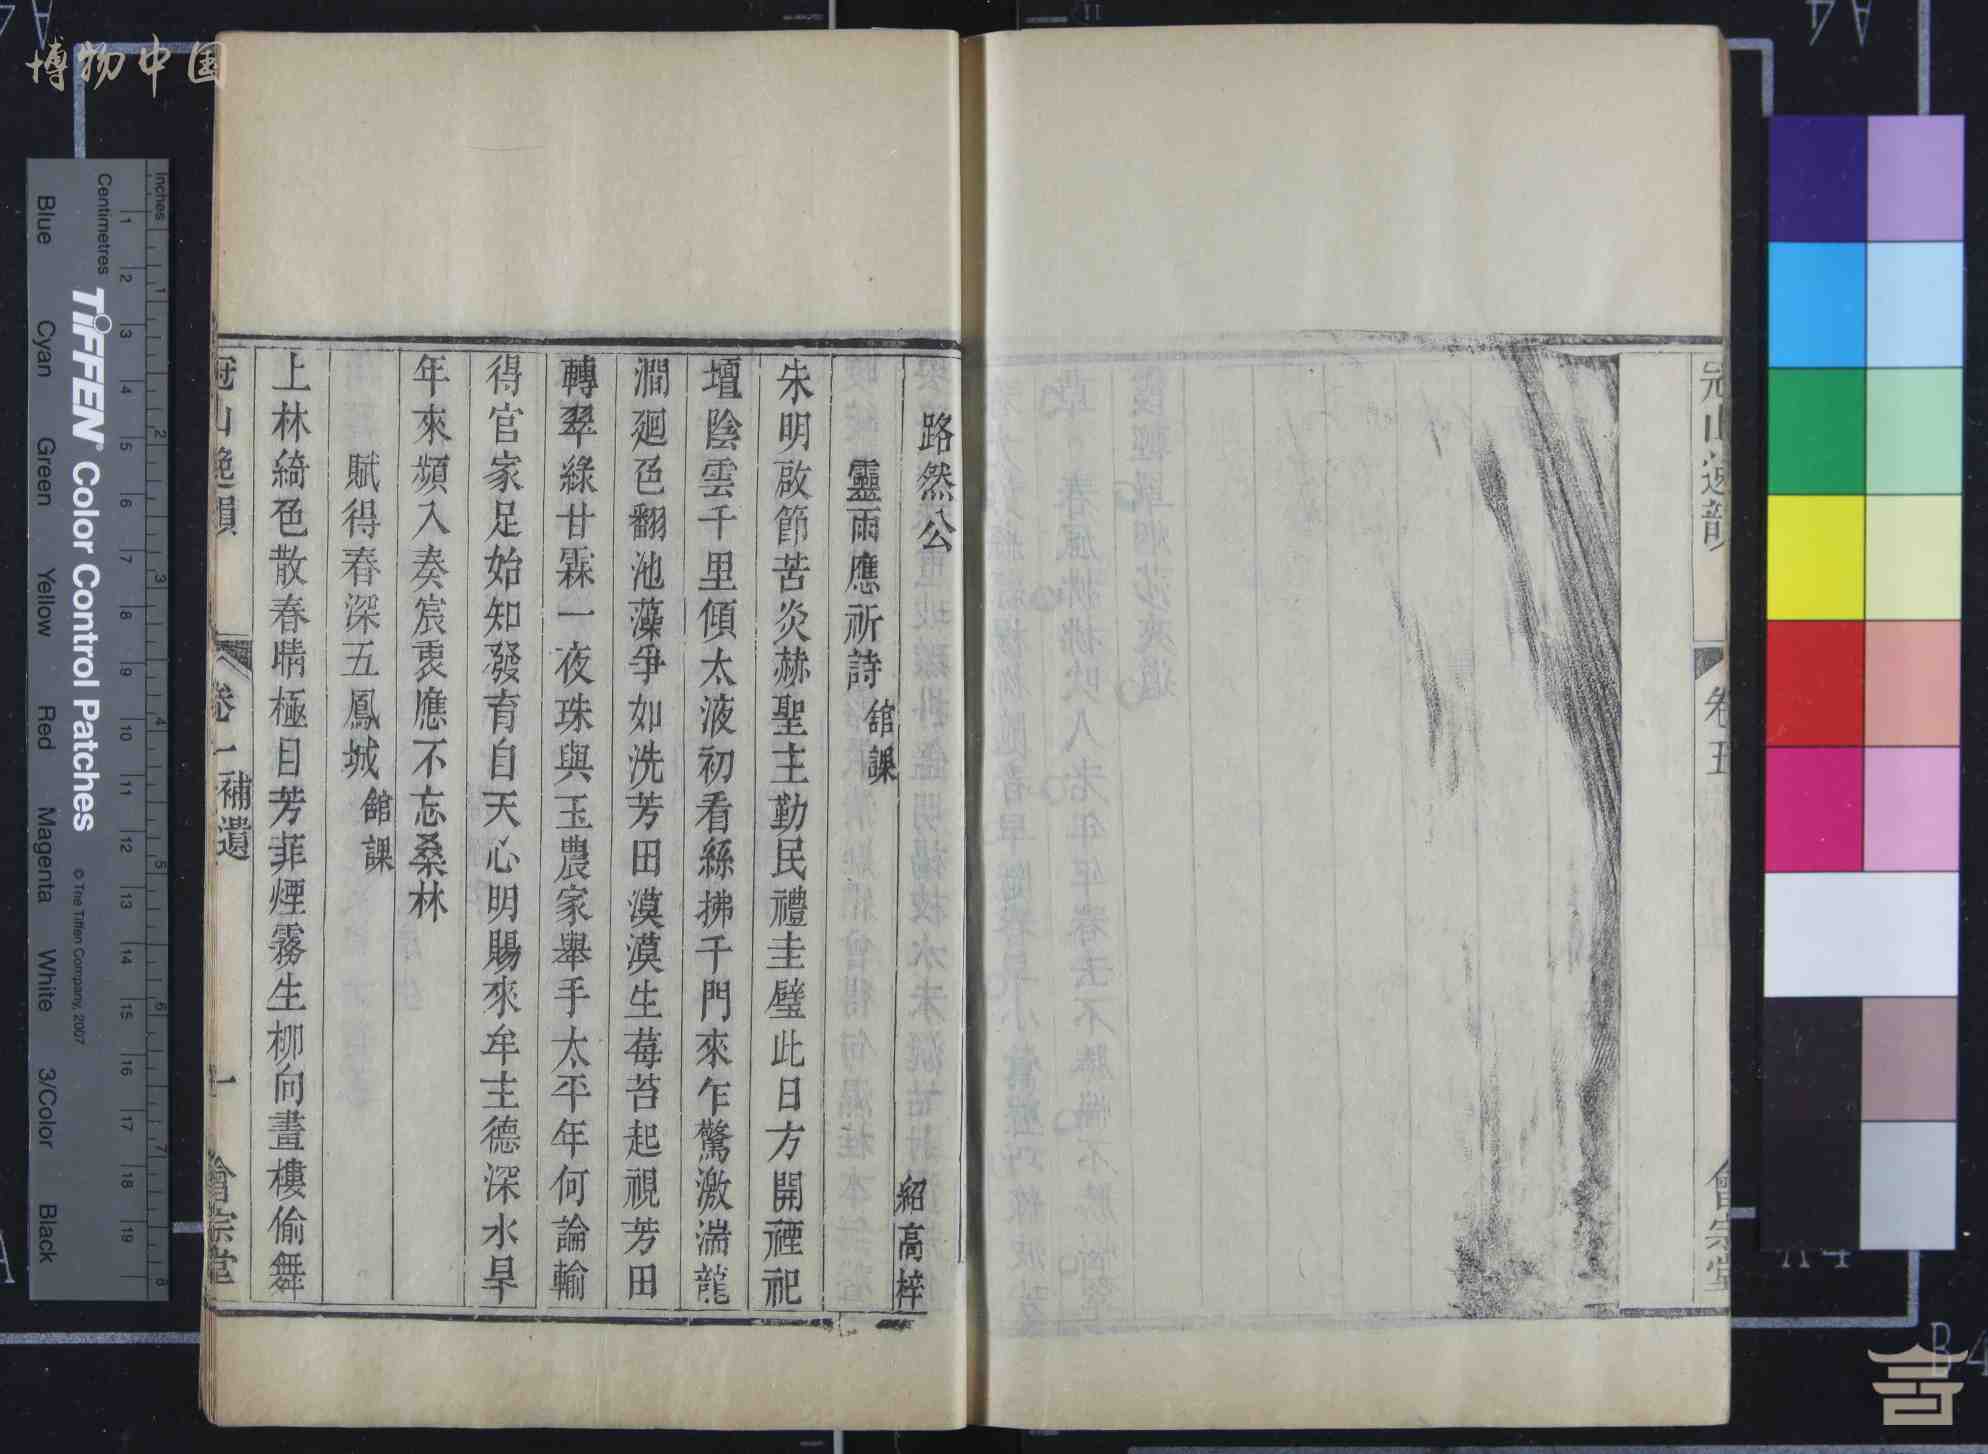 路然公
紹高梓
靈雨應祈詩 舘課
朱明啟節苦炎赫聖主勤民禮圭璧此日方開禋祀
壇陰雲千里傾太液初看絲拂千門來乍驚激湍龍
澗廻色翻池藻爭如洗芳田漠漠生莓苔起視芳田
轉翠綠甘霖一夜珠與玉農家舉手太平年何論輸
得官家足始知發育自天心明賜來牟主德深水旱
年來頻入奏宸衷應不忘桑林
賦得春深五鳳城 舘課
上林綺色散春晴極目芳菲煙霧生柳向畫樓偷舞
卷一 補遺
一
會宗堂
卷五
會宗堂
博物中国
Inches
Centimetres
TIFFEN Color Control Patches
© The Tiffen Company, 2007
Blue Cyan Green Yellow Red Magenta White 3/Color Black